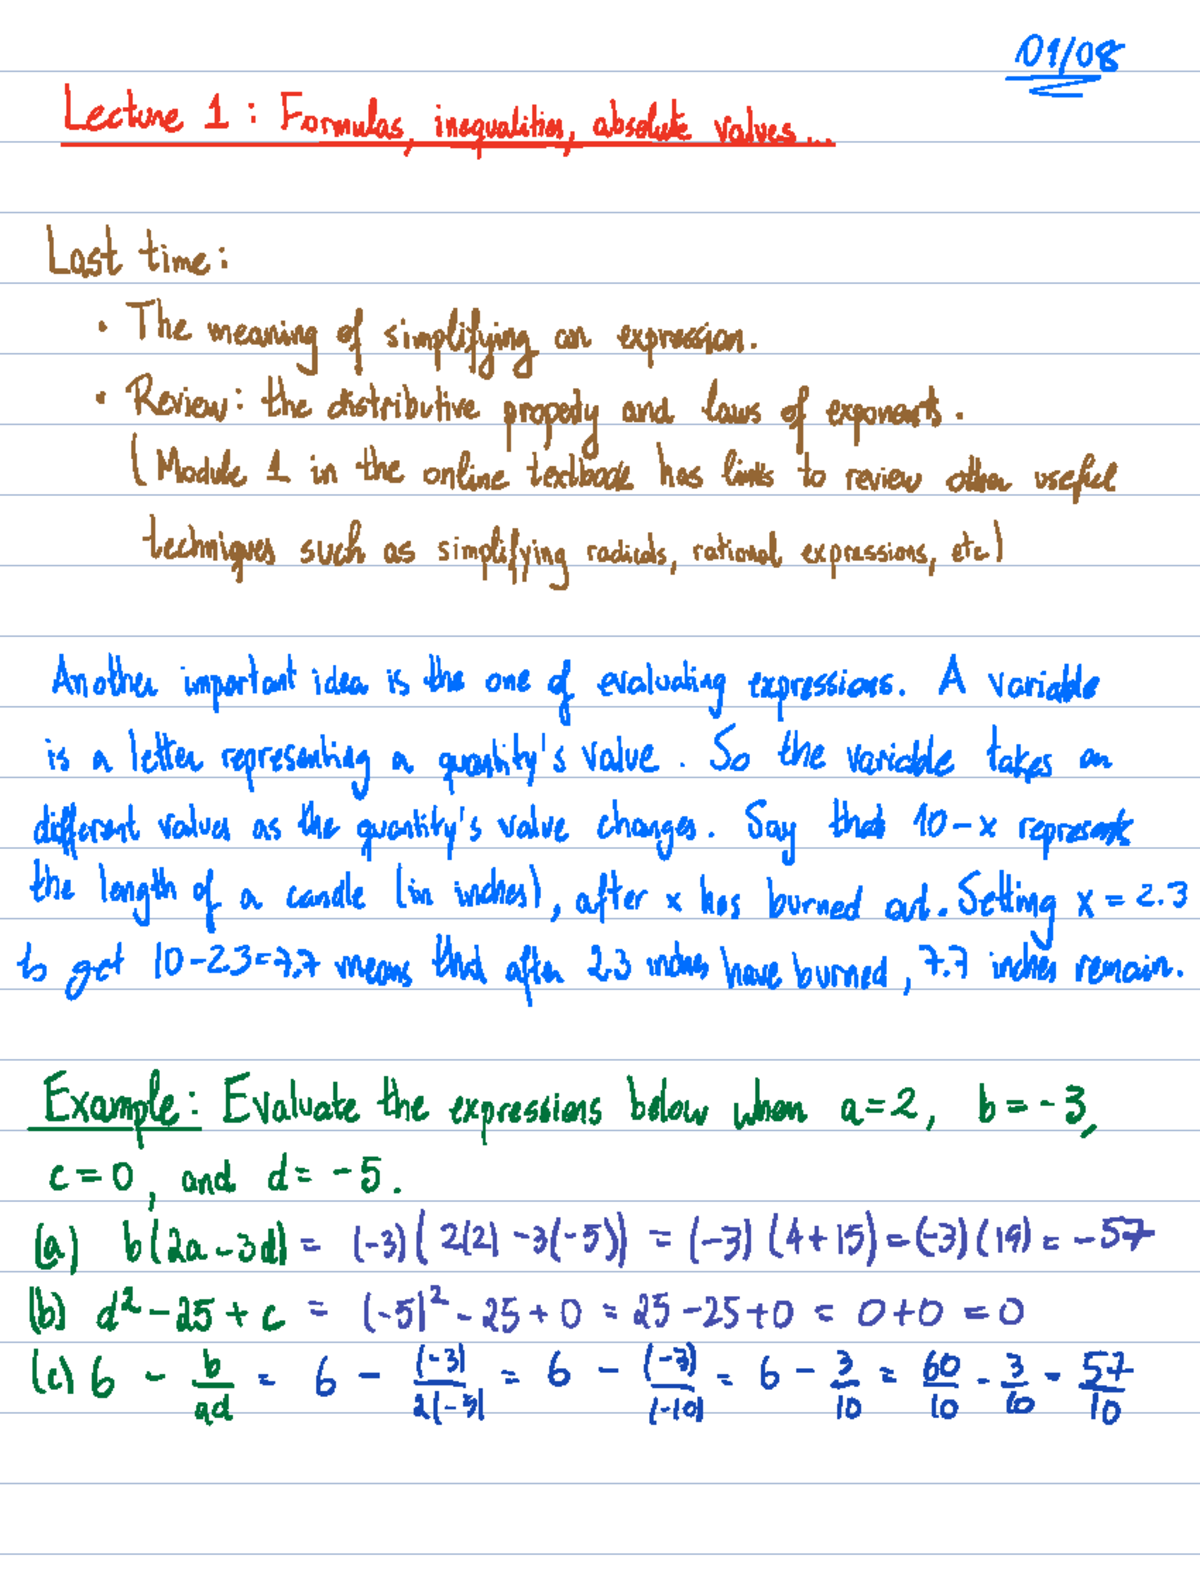 01/08
Lecture 1 : Formulas, inequalities, absolute values...
Last time:
• The meaning of simplifying an expression.
• Review: the distributive property and laws of exponents.
(Module 1 in the online textbook has links to review other useful
techniques such as simplifying radicals, rational expressions, etc)
Another important idea is the one of evaluating expressions. A variable
is a letter representing a quantity's value. So the variable takes on
different values as the quantity's value changes. Say that 10-x represents
the length of a candle (in inches), after x has burned out. Setting x = 2.3
to get 10-2.3=7.7 means that after 2.3 inches have burned, 7.7 inches remain.
Example: Evaluate the expressions below when a=2, b=-3,
c=0, and d=-5.
(a) b(2a-3d) = (-3)(2(2)-3(-5)) = (-3)(4+15)=(-3)(19)=-57
(b) d²-25+c = (-5)²-25+0 = 25-25+0 = 0+0 = 0
(c) 6 - b/ad = 6 - (-3)/2(-5) = 6 - (-3)/(-10) = 6 - 3/10 = 60/10 - 3/10 = 57/10